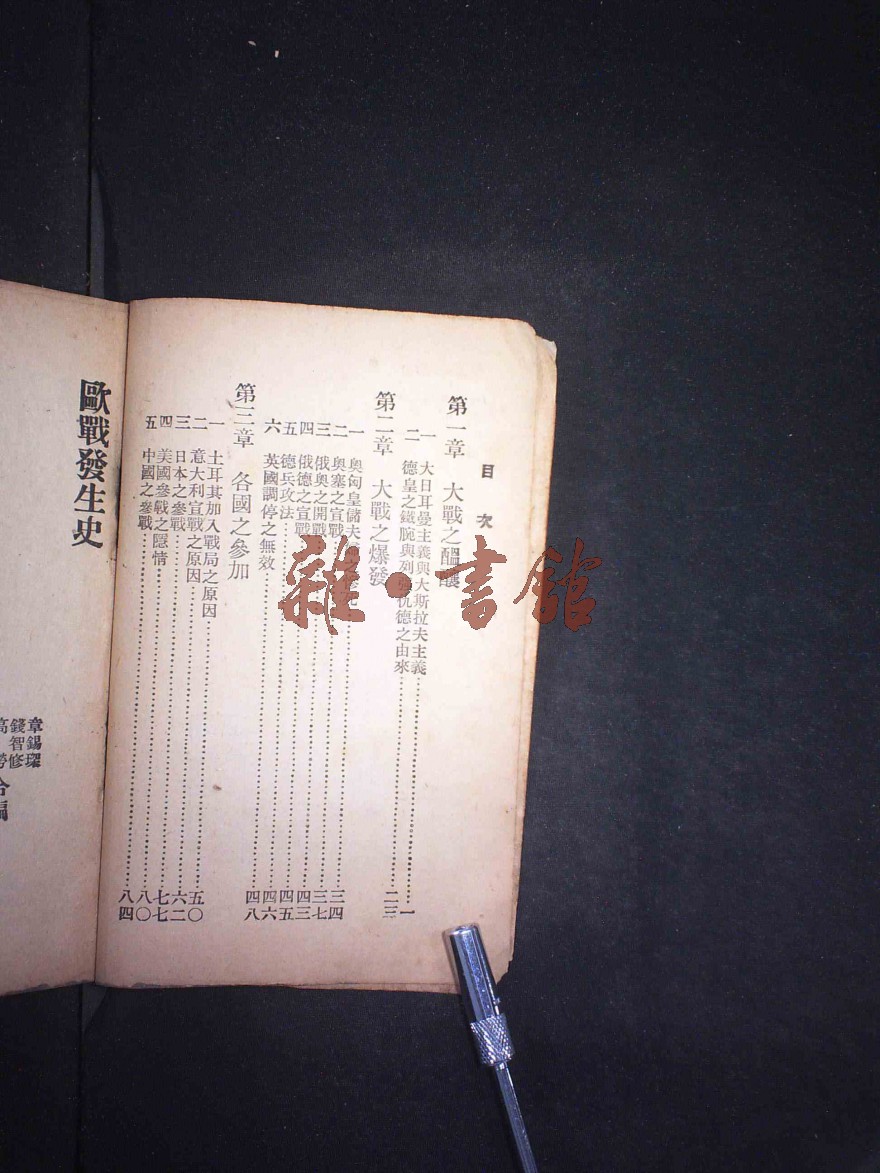 目次
第一章 大戰之醞釀
一 大日耳曼主義與大斯拉夫主義……一
二 德皇之鐵腕與列強仇德之由來……二三
第二章 大戰之爆發
一 奧匈皇儲夫……三四
二 奧塞之宣戰……三七
三 俄奧之開戰……四三
四 俄德之宣戰……四五
五 德兵攻法……四六
六 英國調停之無效……四八
第三章 各國之參加
一 土耳其加入戰局之原因……五〇
二 意大利宣戰之原因……六二
三 日本之參戰……七七
四 美國參戰之隱情……八〇
五 中國之參戰……八四
歐戰發生史
章錫琛
錢智修
高勞
合編
雜·書館